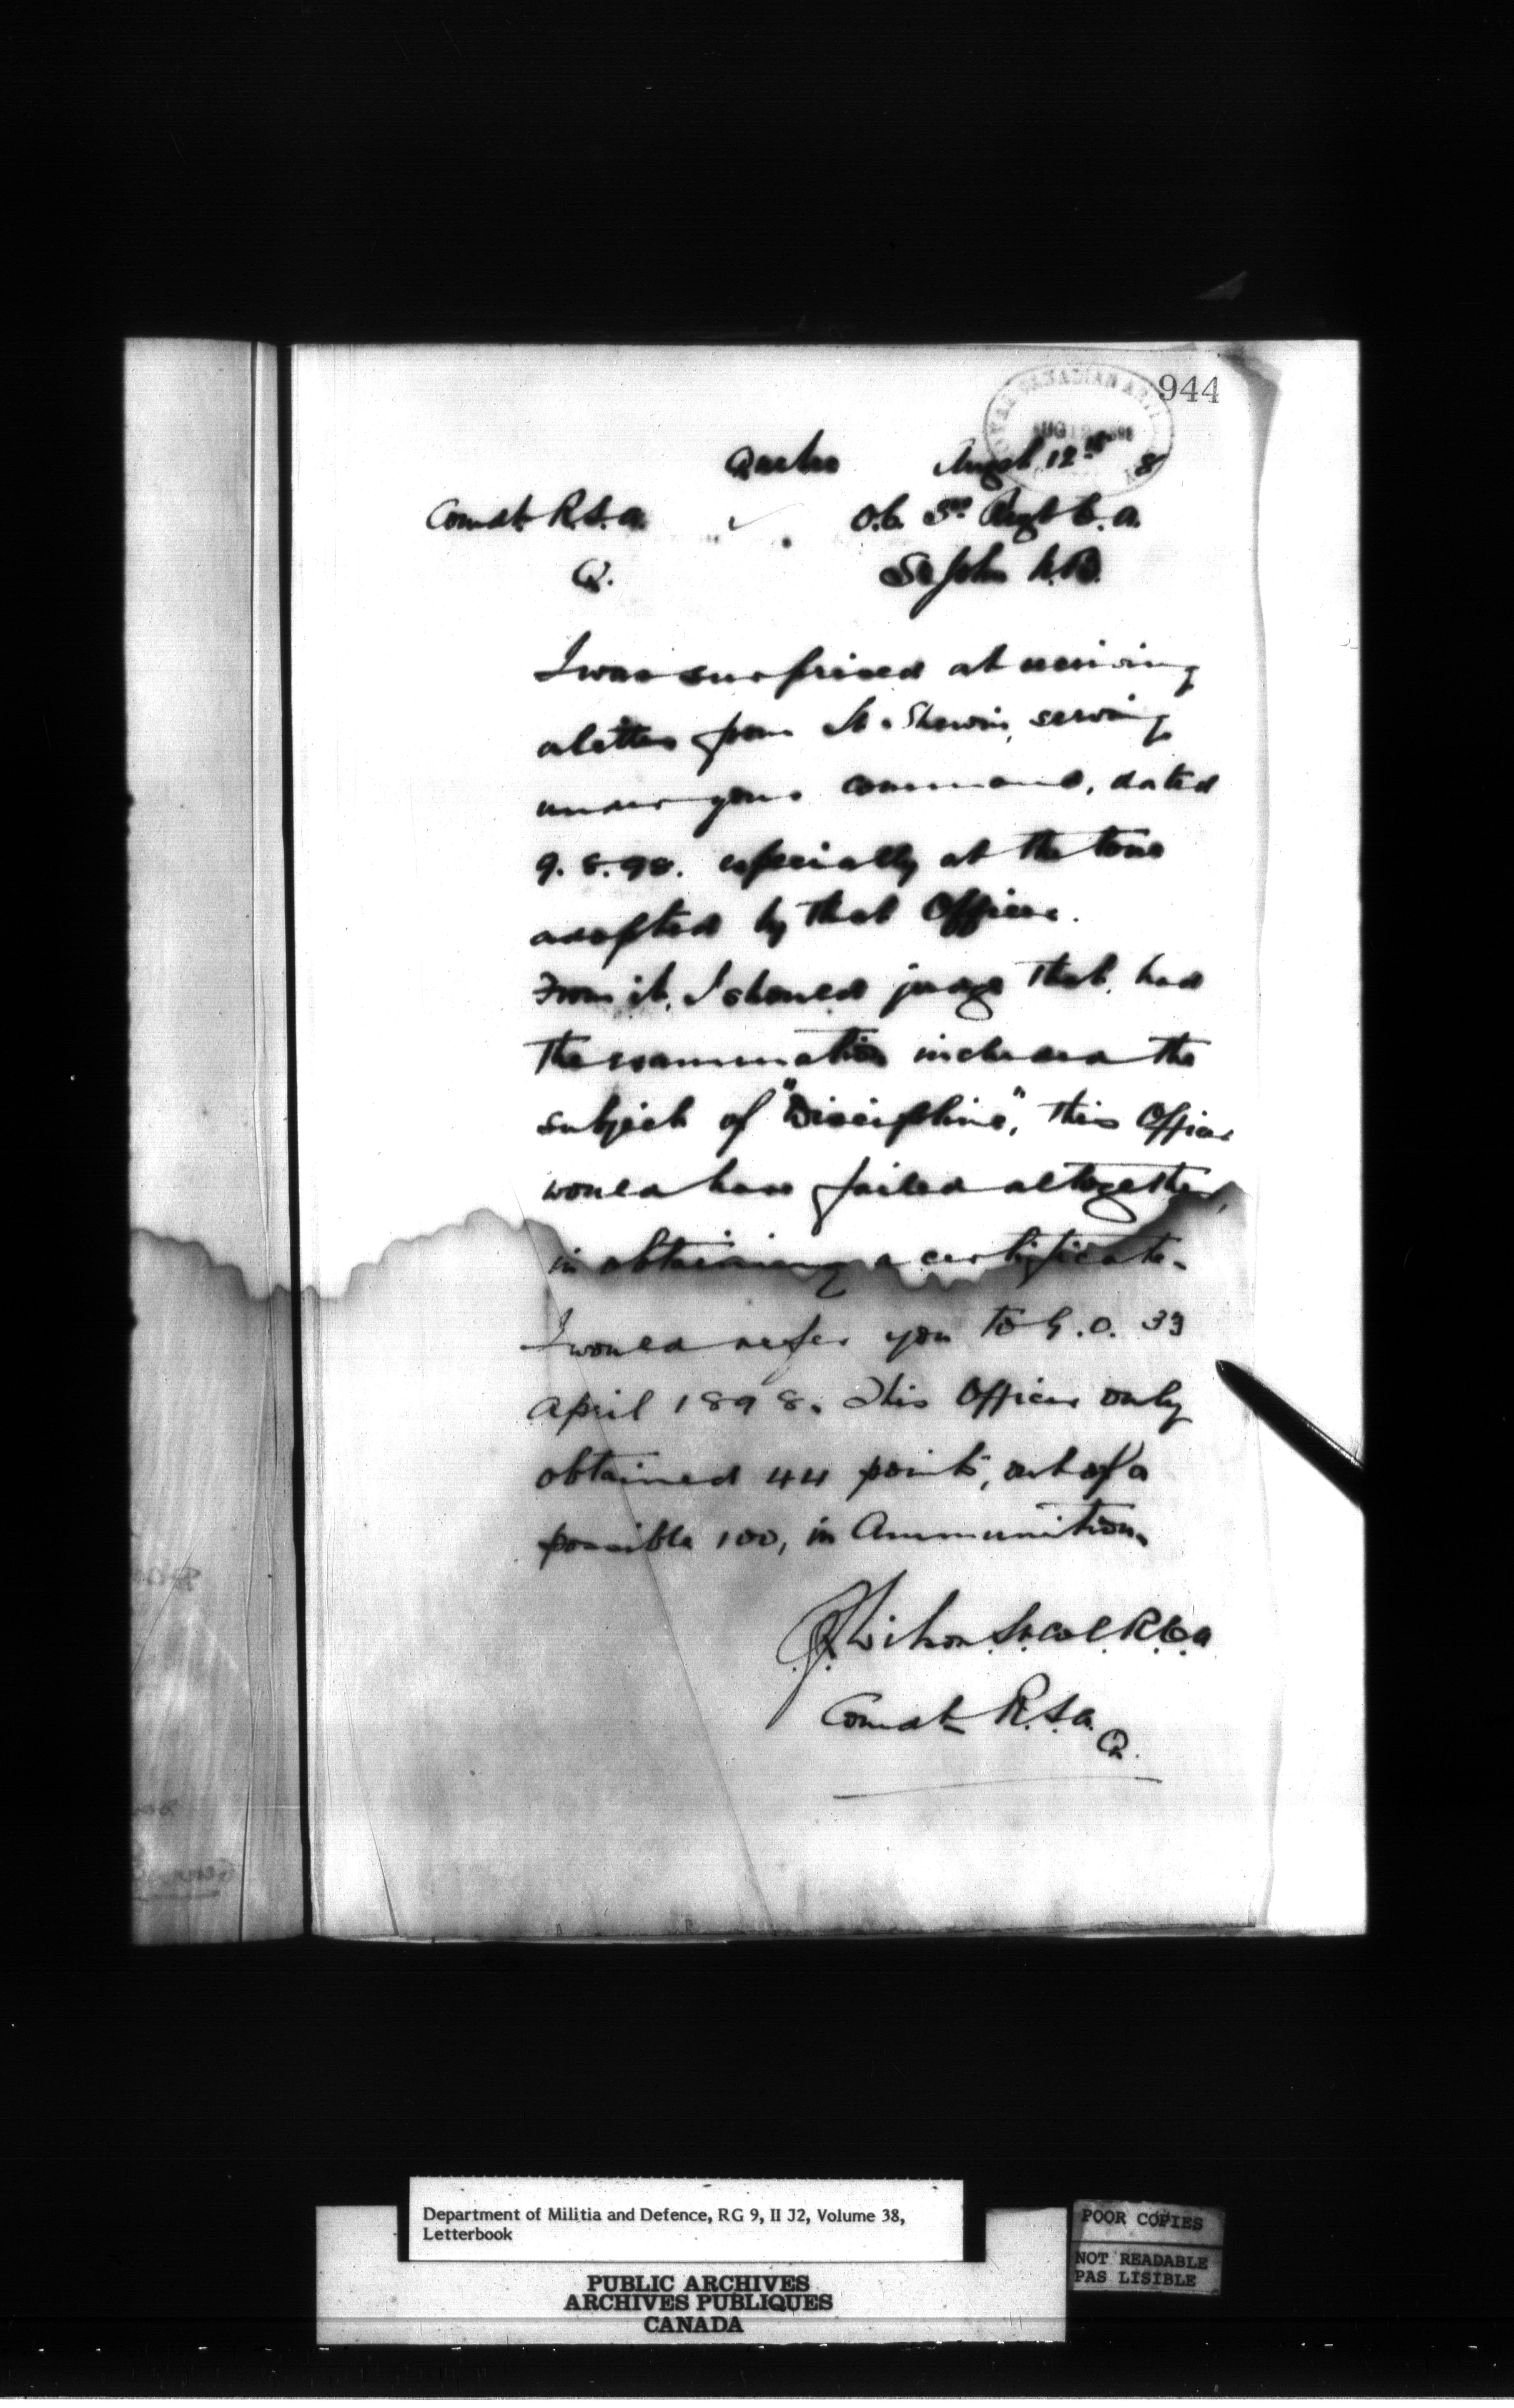 944
ROYAL CANADIAN ARTI
AUG 12 1898
Quebec Augst 12th 8
Comdt. R.S.A. O.C. 3rd Regt C.A.
Q. St John N.B.
I was surprised at receiving
a letter from Lt. Sherwin, serving
under your command, dated
9.8.98. especially at the tone
adopted by that Officer.
From it, I should judge that, had
the examination included the
subject of "Discipline", this Officer
would have failed altogether,
in obtaining a certificate.
I would refer you to G.O. 33
April 1898. This Officer only
obtained 44 points, out of a
possible 100, in Ammunition.
Wilson Lt. Col. R.C.A
Comdt R.S.A.
Q.
Department of Militia and Defence, RG 9, II J2, Volume 38,
Letterbook
POOR COPIES
NOT READABLE
PAS LISIBLE
PUBLIC ARCHIVES
ARCHIVES PUBLIQUES
CANADA